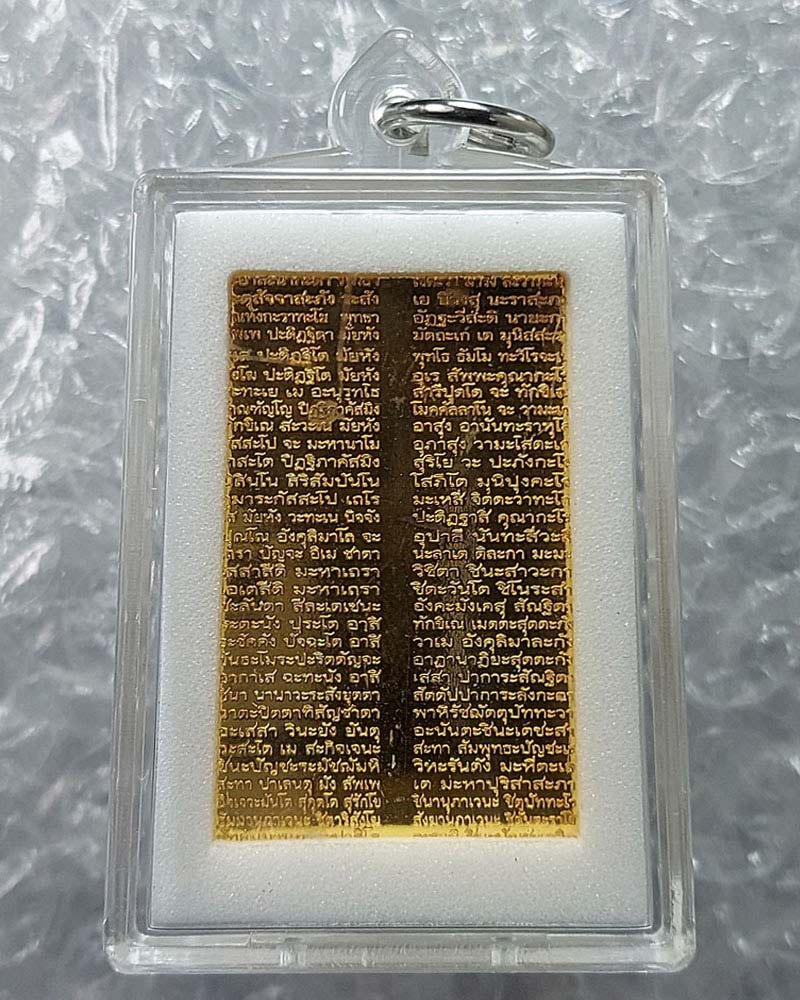 ะตุสัจจาสะภัง ระสัง เย ปิวิงสุ นะราสะภ
ณหังกะราทะโย พุทธา อัฏฐะวีสะติ นายะก
พเพ ปะติฏฐิตา มัยหัง มัตถะเก เต มุนิสสะ
เส ปะติฏฐิโต มัยหัง พุทโธ ธัมโม ทะวิโลจะเ
งโฆ ปะติฏฐิโต มัยหัง อุเร สัพพะคุณากะโ
ะทะเย เม อะนุรุทโธ สารีปุตโต จะ ทักขิเ
กณฑัญโญ ปิฏฐิภาคัสมิง โมคคัลลาโน จะ วามะ
ทักขิเณ สะวะเน มัยหัง อาสุง อานันทะราหุโ
สสะโป จะ มะหานาโม อุภาสุง วามะโสตะเ
าสะโต ปิฏฐิภาคัสมิง สุริโย วะ ปะภังกะโ
สินโน สิริสัมปันโน โสภิโต มุนิปุงคะโ
มาระกัสสะโป เถโร มะเหสี จิตตะวาทะโ
ส มัยหัง วะทะเน นิจจัง ปะติฏฐาสิ คุณากะโ
ปุณโณ อังคุลิมาโล จะ อุปาลี นันทะสีวะ
ถรา ปัญจะ อิเม ชาตา นะลาเต ติละกา มะมะ
สสาสีติ มะหาเถรา วิชิตา ชินะสาวะกา
อเตสีติ มะหาเถรา ชิตะวันโต ชิโนระสา
ชะลันตา สีละเตเชนะ อังคะมังเคสุ สัณฐิต
ระตะนัง ปุระโต อาสิ ทักขิเณ เมตตะสุตตะก
ะชัคคัง ปัจฉะโต อาสิ วาเม อังคุลิมาละก
ันธะโมระปะริตตัญจะ อาฏานาฏิยะสุตตะก
อากาเส ฉะทะนัง อาสิ เสสา ปาการะสัณฐิต
ชินา นานาวะระสังยุตตา สัตตัปปาการะลังกะต
าตะปิตตาทิสัญชาตา พาหิรัชฌัตตุปัททะว
ะเสสา วินะยัง ยันตุ อะนันตะชินะเตชะส
วะสะโต เม สะกิจเจนะ สะทา สัมพุทธะปัญชะเ
ชินะปัญชะระมัชฌัมหิ วิหะรันตัง มะหีตะเ
สะทา ปาเลนตุ มัง สัพเพ เต มะหาปุริสาสะภ
อิจเจวะมันโต สุคุตโต สุรักโข ชินานุภาเวนะ ชิตุปัททะโ